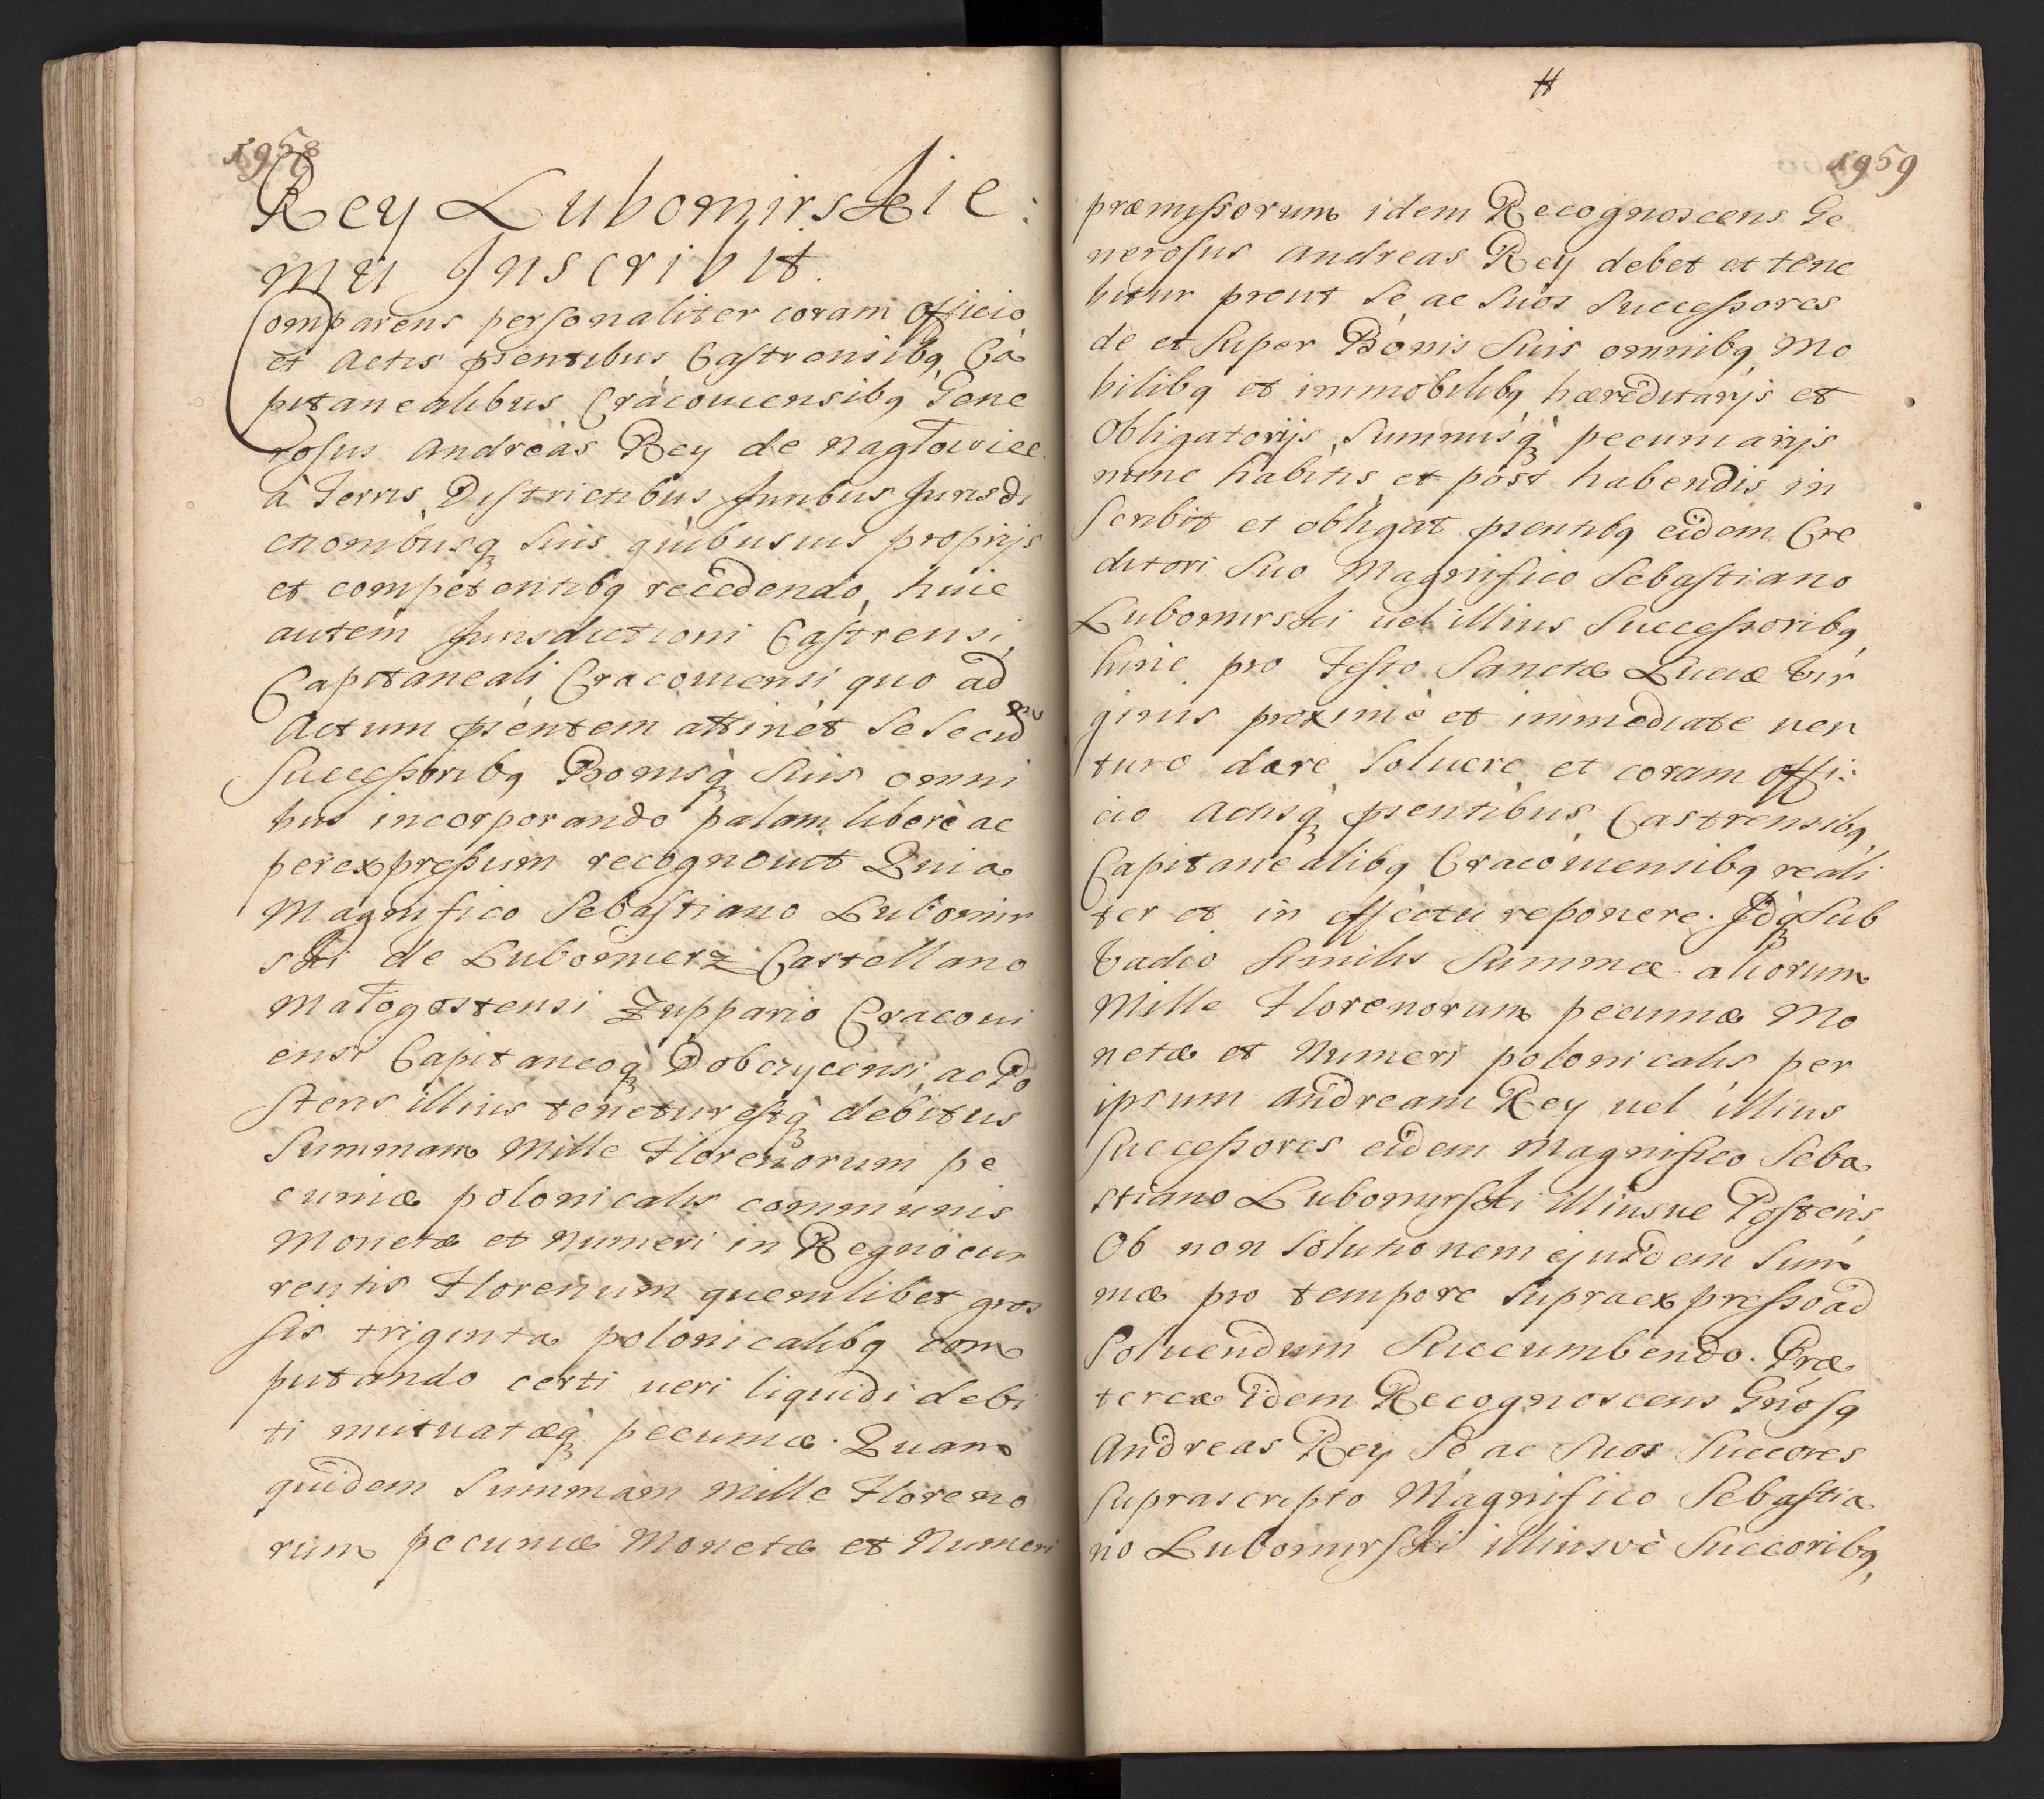 1958
Rey Lubomirskie:
mu Inscribit.
Comparens personaliter coram Officio
et Actis pñentibus Castrensibq Ca
pitanealibus Cracouiensibq Gene
rosus Andreas Rey de Nagłowice
à Terris Districtibus Iuribus Iurisdi
ctionibusq suis quibusuis proprijs
et competentibq recedendo, huic
autem Iurisdictioni Castrensi
Capitaneali Cracouiensi quo ad
Actum pñentem attinet se se cum
Successoribq Bonisq suis omni
bus incorporando palam liberè ac
per expressum recognouit Quia
Magnifico Sebastiano Lubomir
ski de Lubomierz Castellano
Małogostensi Zuppario Cracoui
ensi Capitaneoq Dobczycensi, ac Po
steris illius tenetur estq debitus
Summam Mille Florenorum pe
cuniæ polonicalis communis
Monetæ et Numeri in Regno cur
rentis Florenum quemlibet gros
sis triginta polonicalibq com
putando certi ueri liquidi debi
ti mutuatæq pecuniæ. Quam
quidem Summam Mille Floreno
rum pecuniæ Monetæ et Numeri
H
1959
præmissorum idem Recognoscens Ge
nerosus Andreas Rey debet et tene
bitur prout se ac suos Successores
de et super Bonis suis omnibq Mo
bilibq et immobilibq hæreditarijs et
Obligatorijs, Summisq pecuniarijs
nunc habitis et post habendis in
scribit et obligat pñentibq eidem Cre
ditori suo Magnifico Sebastiano
Lubomirski uel illius Successoribq
hinc pro Festo Sanctæ Luciæ Vir
ginis proximè et immediate uen
turo dare soluere et coram Offi:
cio Actisq pñentibus Castrensibq
Capitanealibq Cracouiensibq reali
ter et in effectu reponere. Idq sub
Vadio similis Summæ aliorum
Mille Florenorum pecuniæ Mo
netæ et Numeri polonicalis per
ipsum Andream Rey uel illius
Successores eidem Magnifico Seba
stiano Lubomirski illiusue Posteris
Ob non solutionem ejusdem Sum
mæ pro tempore supraexpresso ad
soluendum succumbendo. Præ
terea idem Recognoscens Gnosq
Andreas Rey se ac suos Succores
suprascripto Magnifico Sebastia
no Lubomirski illiusvè Succoribq,